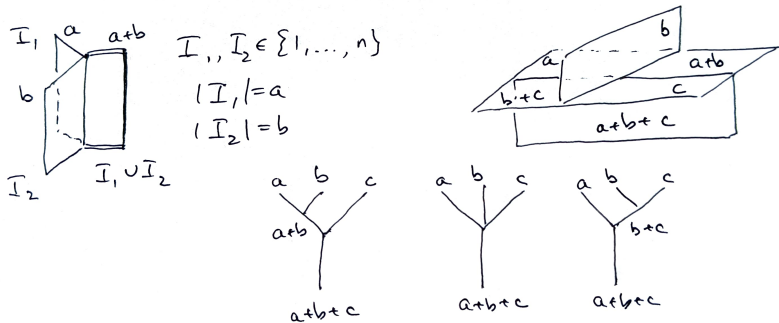 I₁ a a+b
b
I₂ I₁ ∪ I₂
I₁, I₂ ∈ {1, ..., n}
|I₁| = a
|I₂| = b
b
a a+b
b+c c
a+b+c
a b c
a+b
a+b+c
a b c
a+b+c
a b c
b+c
a+b+c